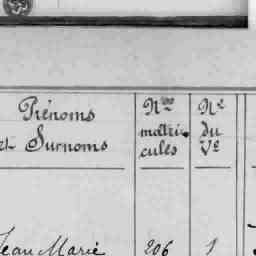 Prénoms
et Surnoms
Nos
matri-
cules
No
du
Vo
Jean Marie 206 1